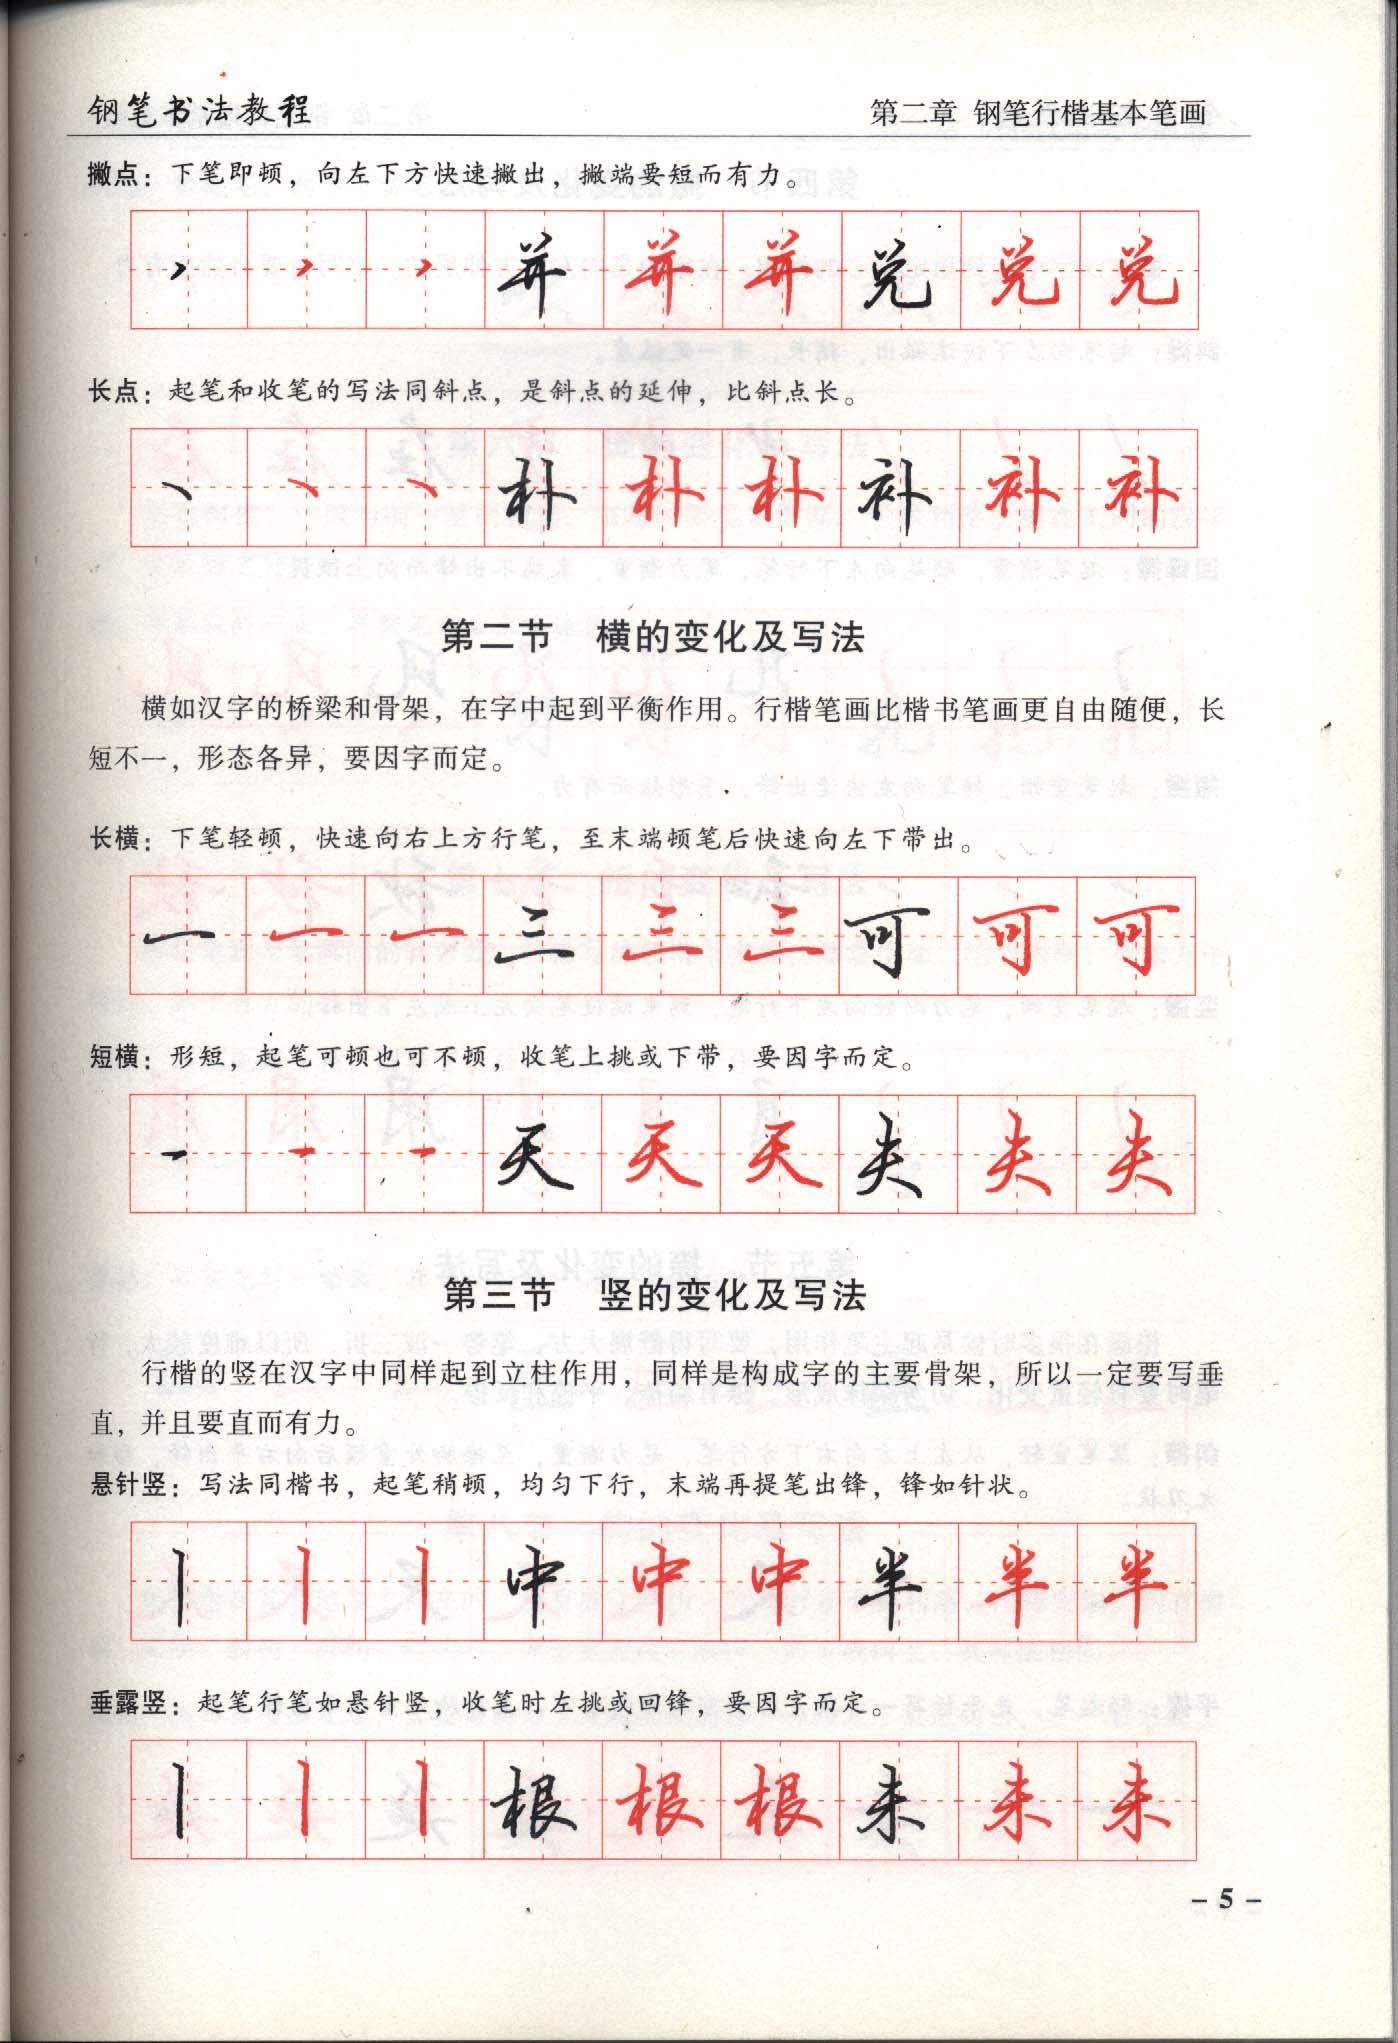 钢笔书法教程 第二章 钢笔行楷基本笔画
撇点：下笔即顿，向左下方快速撇出，撇端要短而有力。
丶 丶 丶 并 并 并 兑 兑 兑
长点：起笔和收笔的写法同斜点，是斜点的延伸，比斜点长。
丶 丶 丶 朴 朴 朴 补 补 补
第二节 横的变化及写法
横如汉字的桥梁和骨架，在字中起到平衡作用。行楷笔画比楷书笔画更自由随便，长
短不一，形态各异，要因字而定。
长横：下笔轻顿，快速向右上方行笔，至末端顿笔后快速向左下带出。
一 一 一 三 三 三 可 可 可
短横：形短，起笔可顿也可不顿，收笔上挑或下带，要因字而定。
一 一 一 天 天 天 夫 夫 夫
第三节 竖的变化及写法
行楷的竖在汉字中同样起到立柱作用，同样是构成字的主要骨架，所以一定要写垂
直，并且要直而有力。
悬针竖：写法同楷书，起笔稍顿，均匀下行，末端再提笔出锋，锋如针状。
丨 丨 丨 中 中 中 半 半 半
垂露竖：起笔行笔如悬针竖，收笔时左挑或回锋，要因字而定。
丨 丨 丨 根 根 根 未 未 未
- 5 -